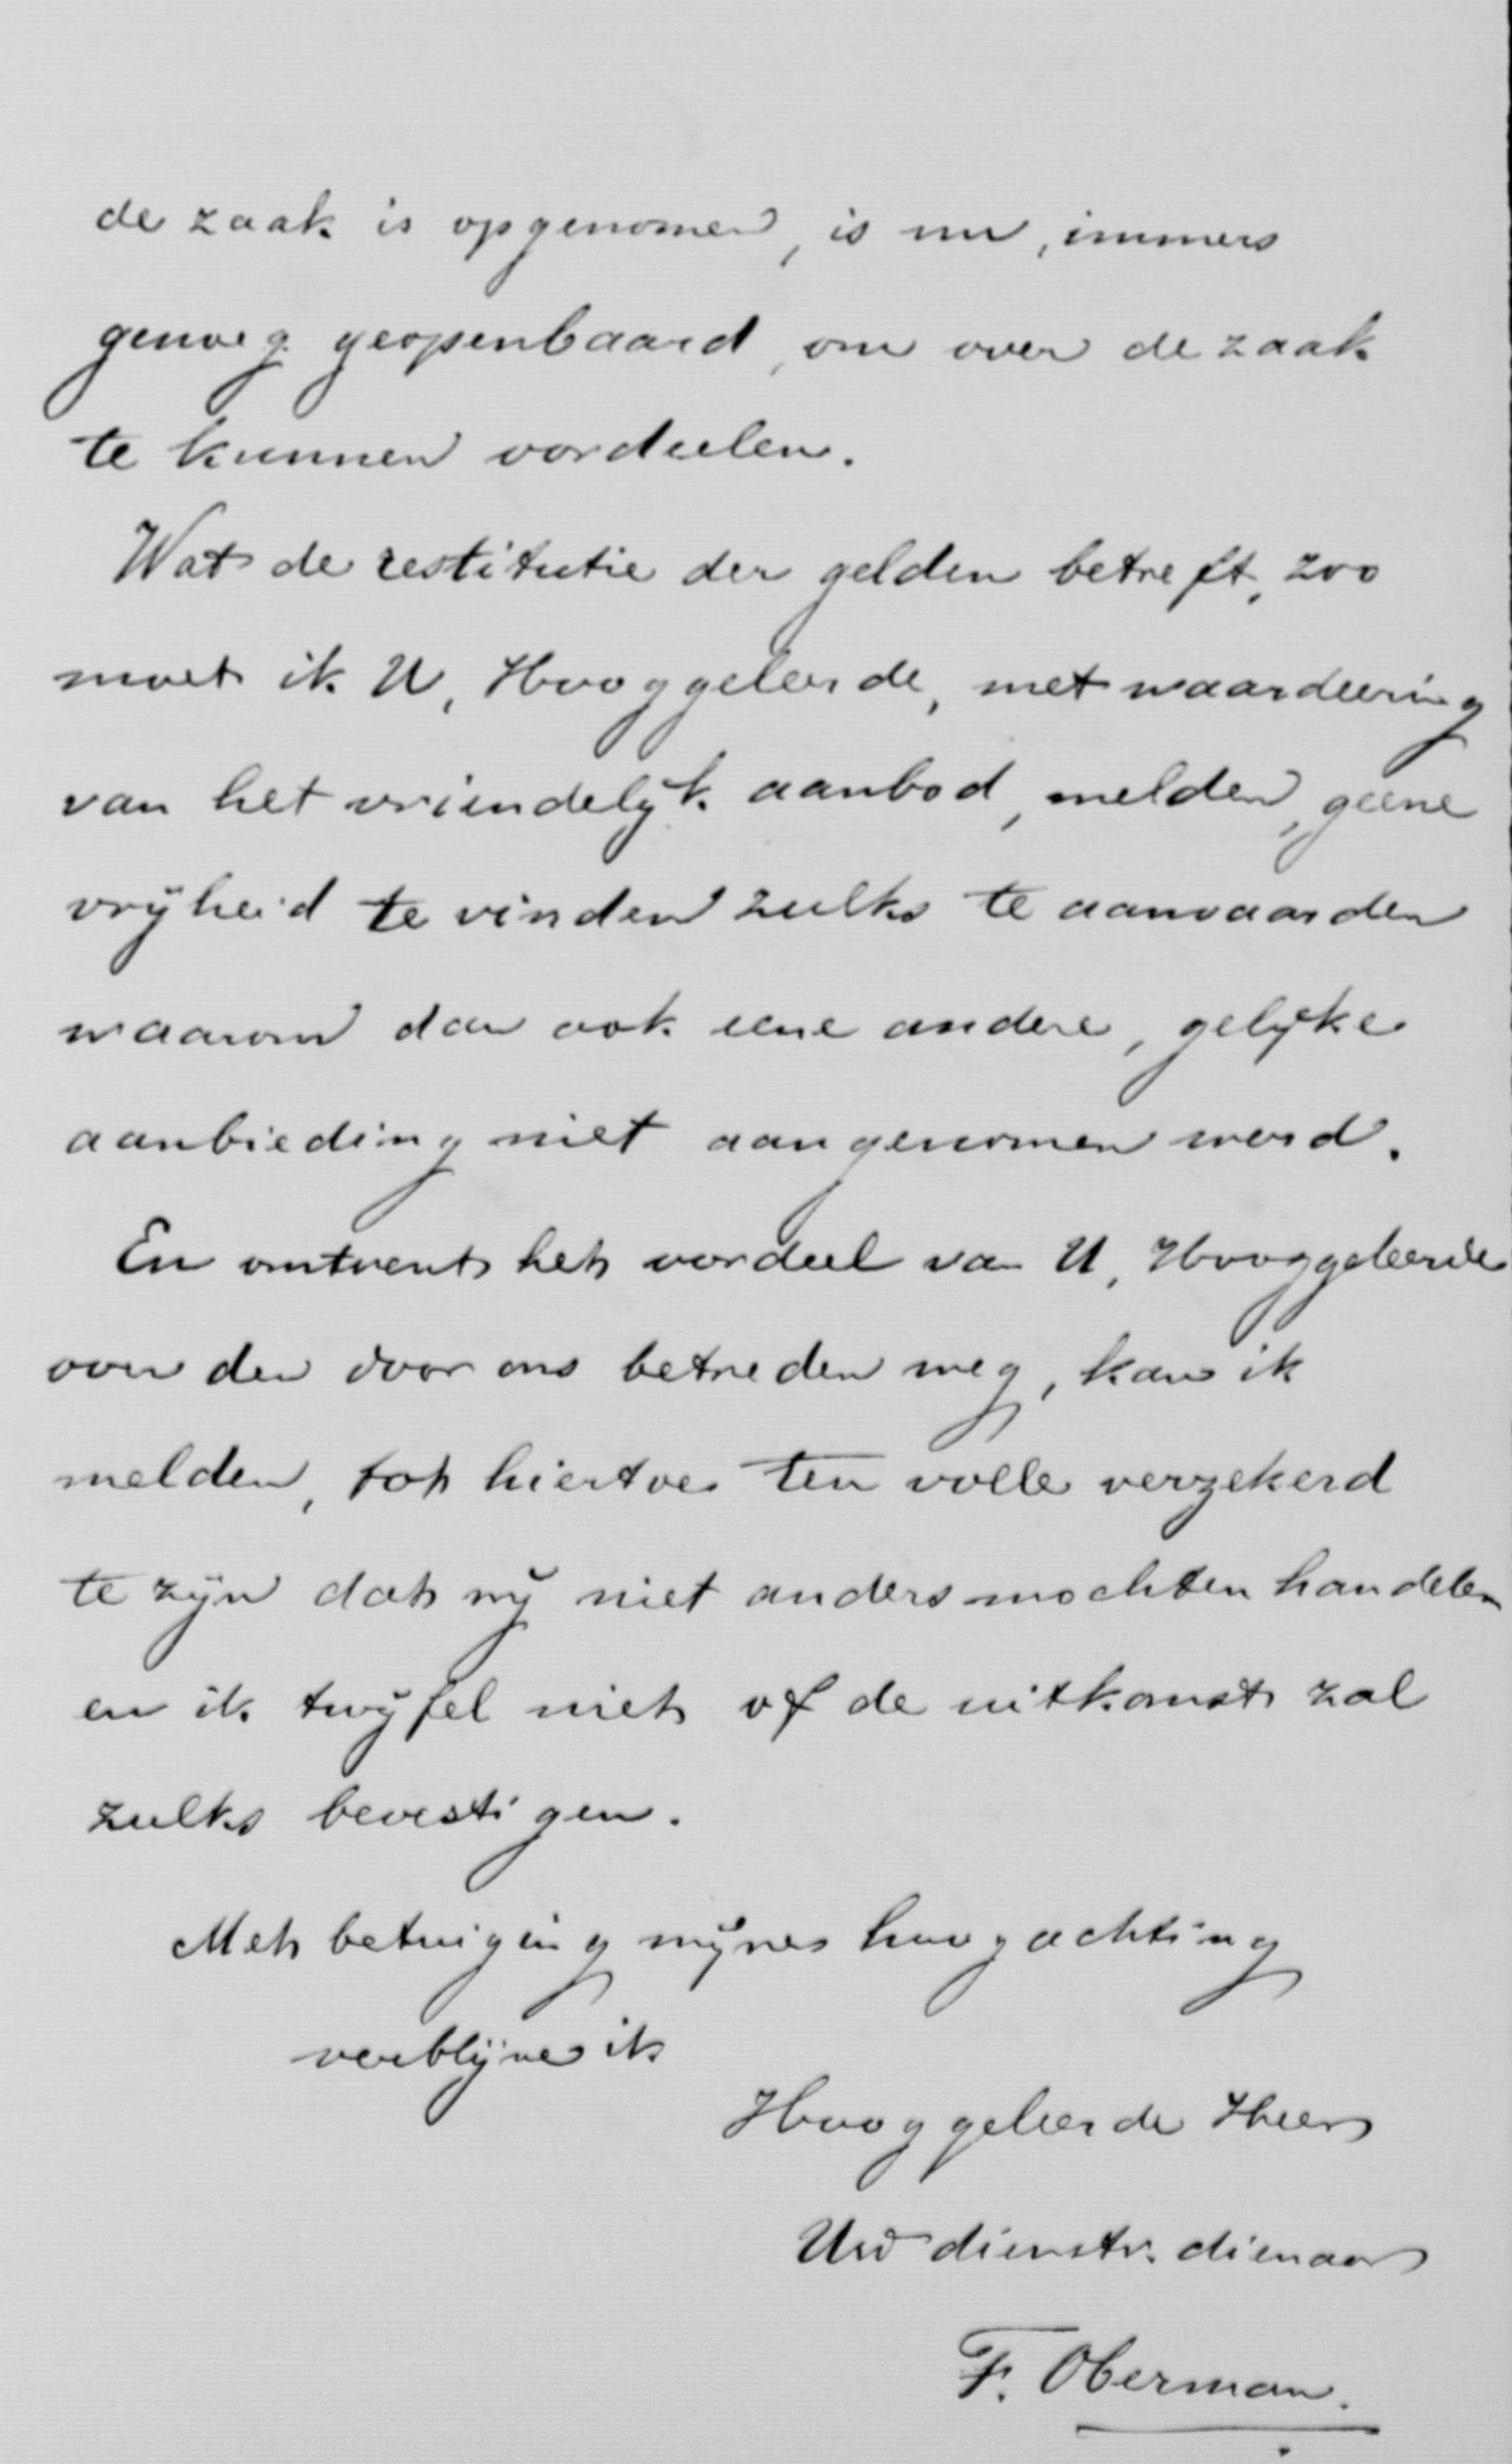 de zaak is opgenomen, is nu, immers
genoeg geopenbaard, om over de zaak
te kunnen oordeelen.
Wat de restitutie der gelden betreft, zoo
moet ik U, Hooggeleerde, met waardeering
van het vriendelijk aanbod, melden, geene
vrijheid te vinden zulks te aanvaarden
waarom dan ook eene andere, gelijke
aanbieding niet aangenomen werd.
En omtrent het oordeel van U, Hooggeleerde
over den door ons betreden weg, kan ik
melden, tot hiertoe ten volle verzekerd
te zijn dat wij niet anders mochten handelen
en ik twijfel niet of de uitkomst zal
zulks bevestigen.
Met betuiging mijner hoogachting
verblijve ik
Hooggeleerde Heer
Uw dienstv. dienaar
F. Oberman.